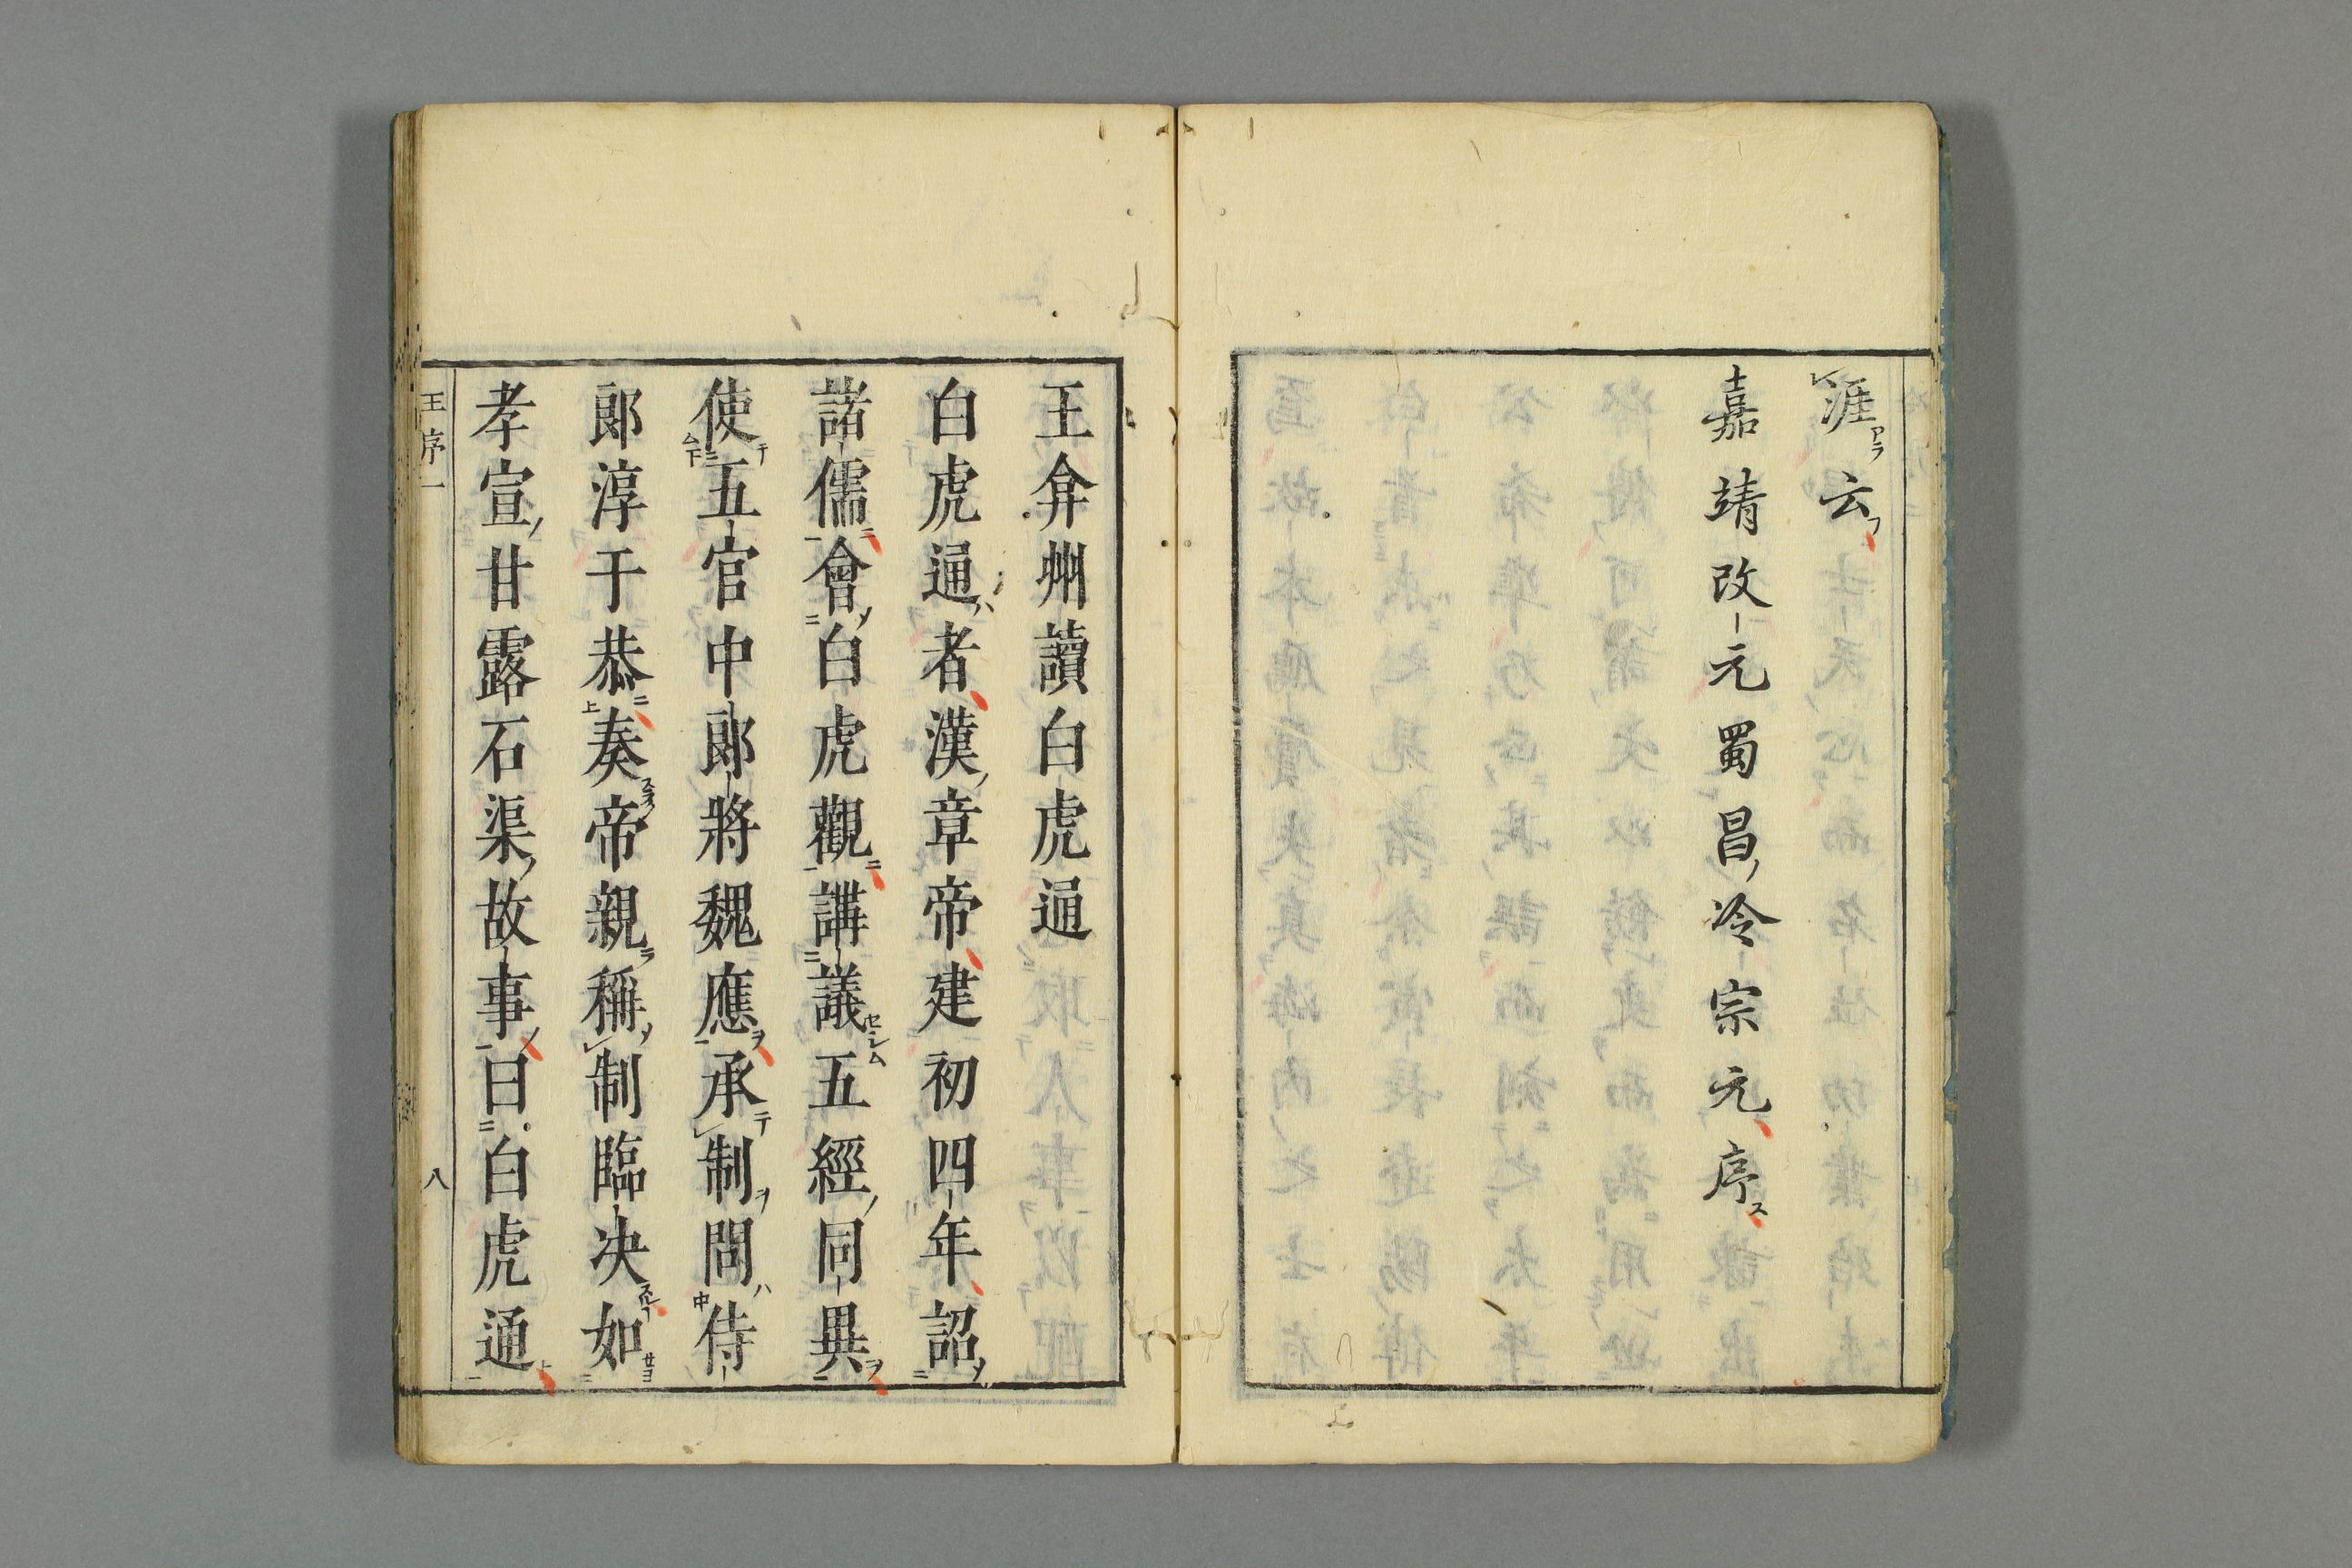 涯云
嘉靖改元蜀昌冷宗元序
王弇州讀白虎通
白虎通者漢章帝建初四年詔
諸儒會白虎觀講議五經同異
使五官中郎將魏應承制問侍
郎淳于恭奏帝親稱制臨決如
孝宣甘露石渠故事曰白虎通
王序一
八